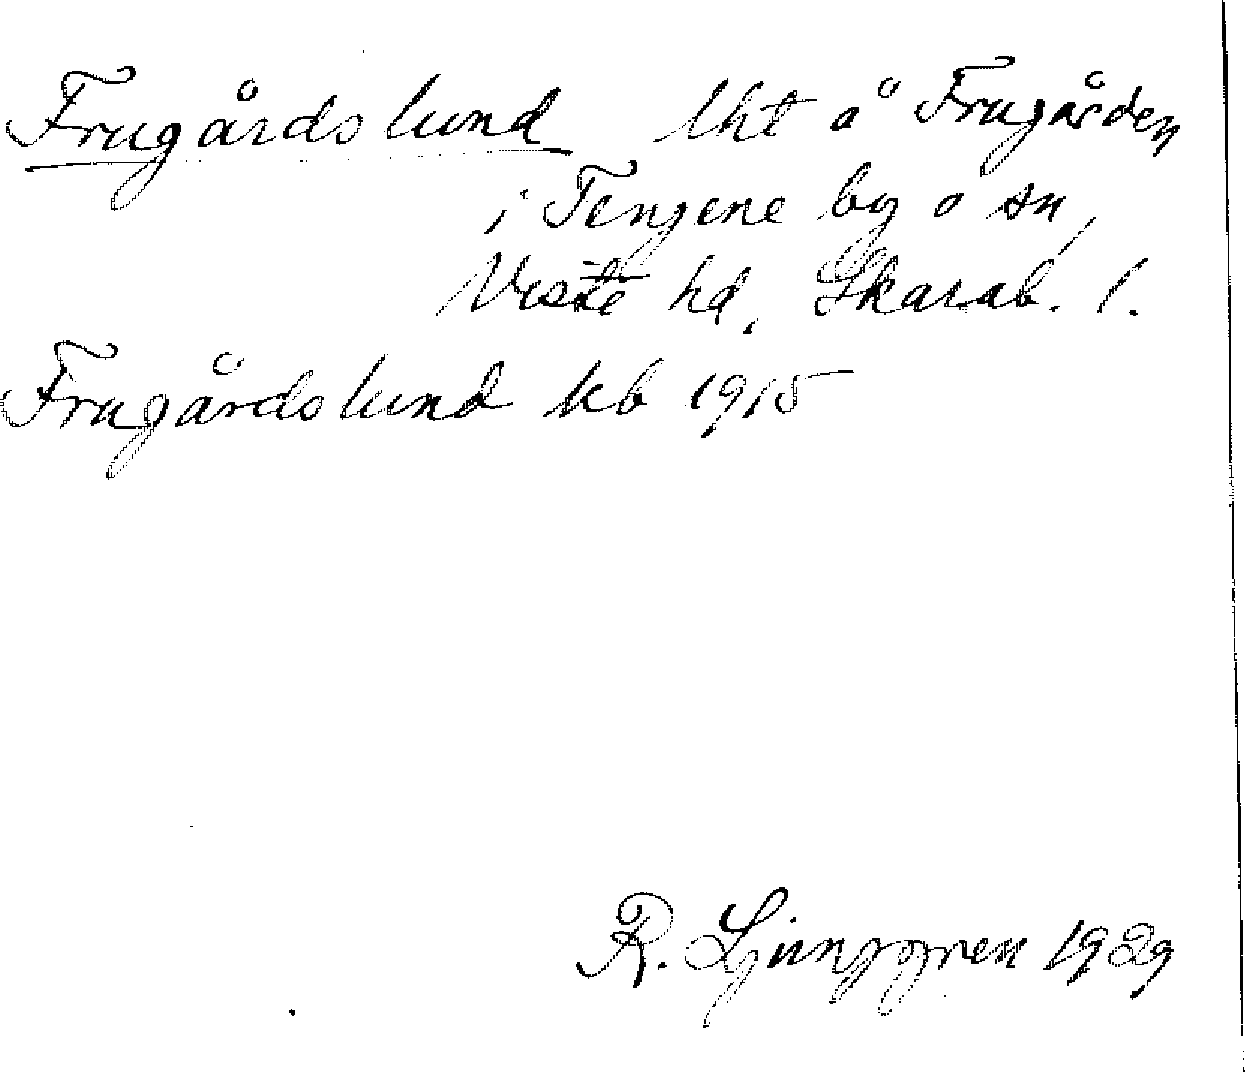 Frugårdslund lht å Frugården
i Tengene by o sn,
Viste hd, Skarab. l.
Frugårdslund kb 1915
R. Ljunggren 1929